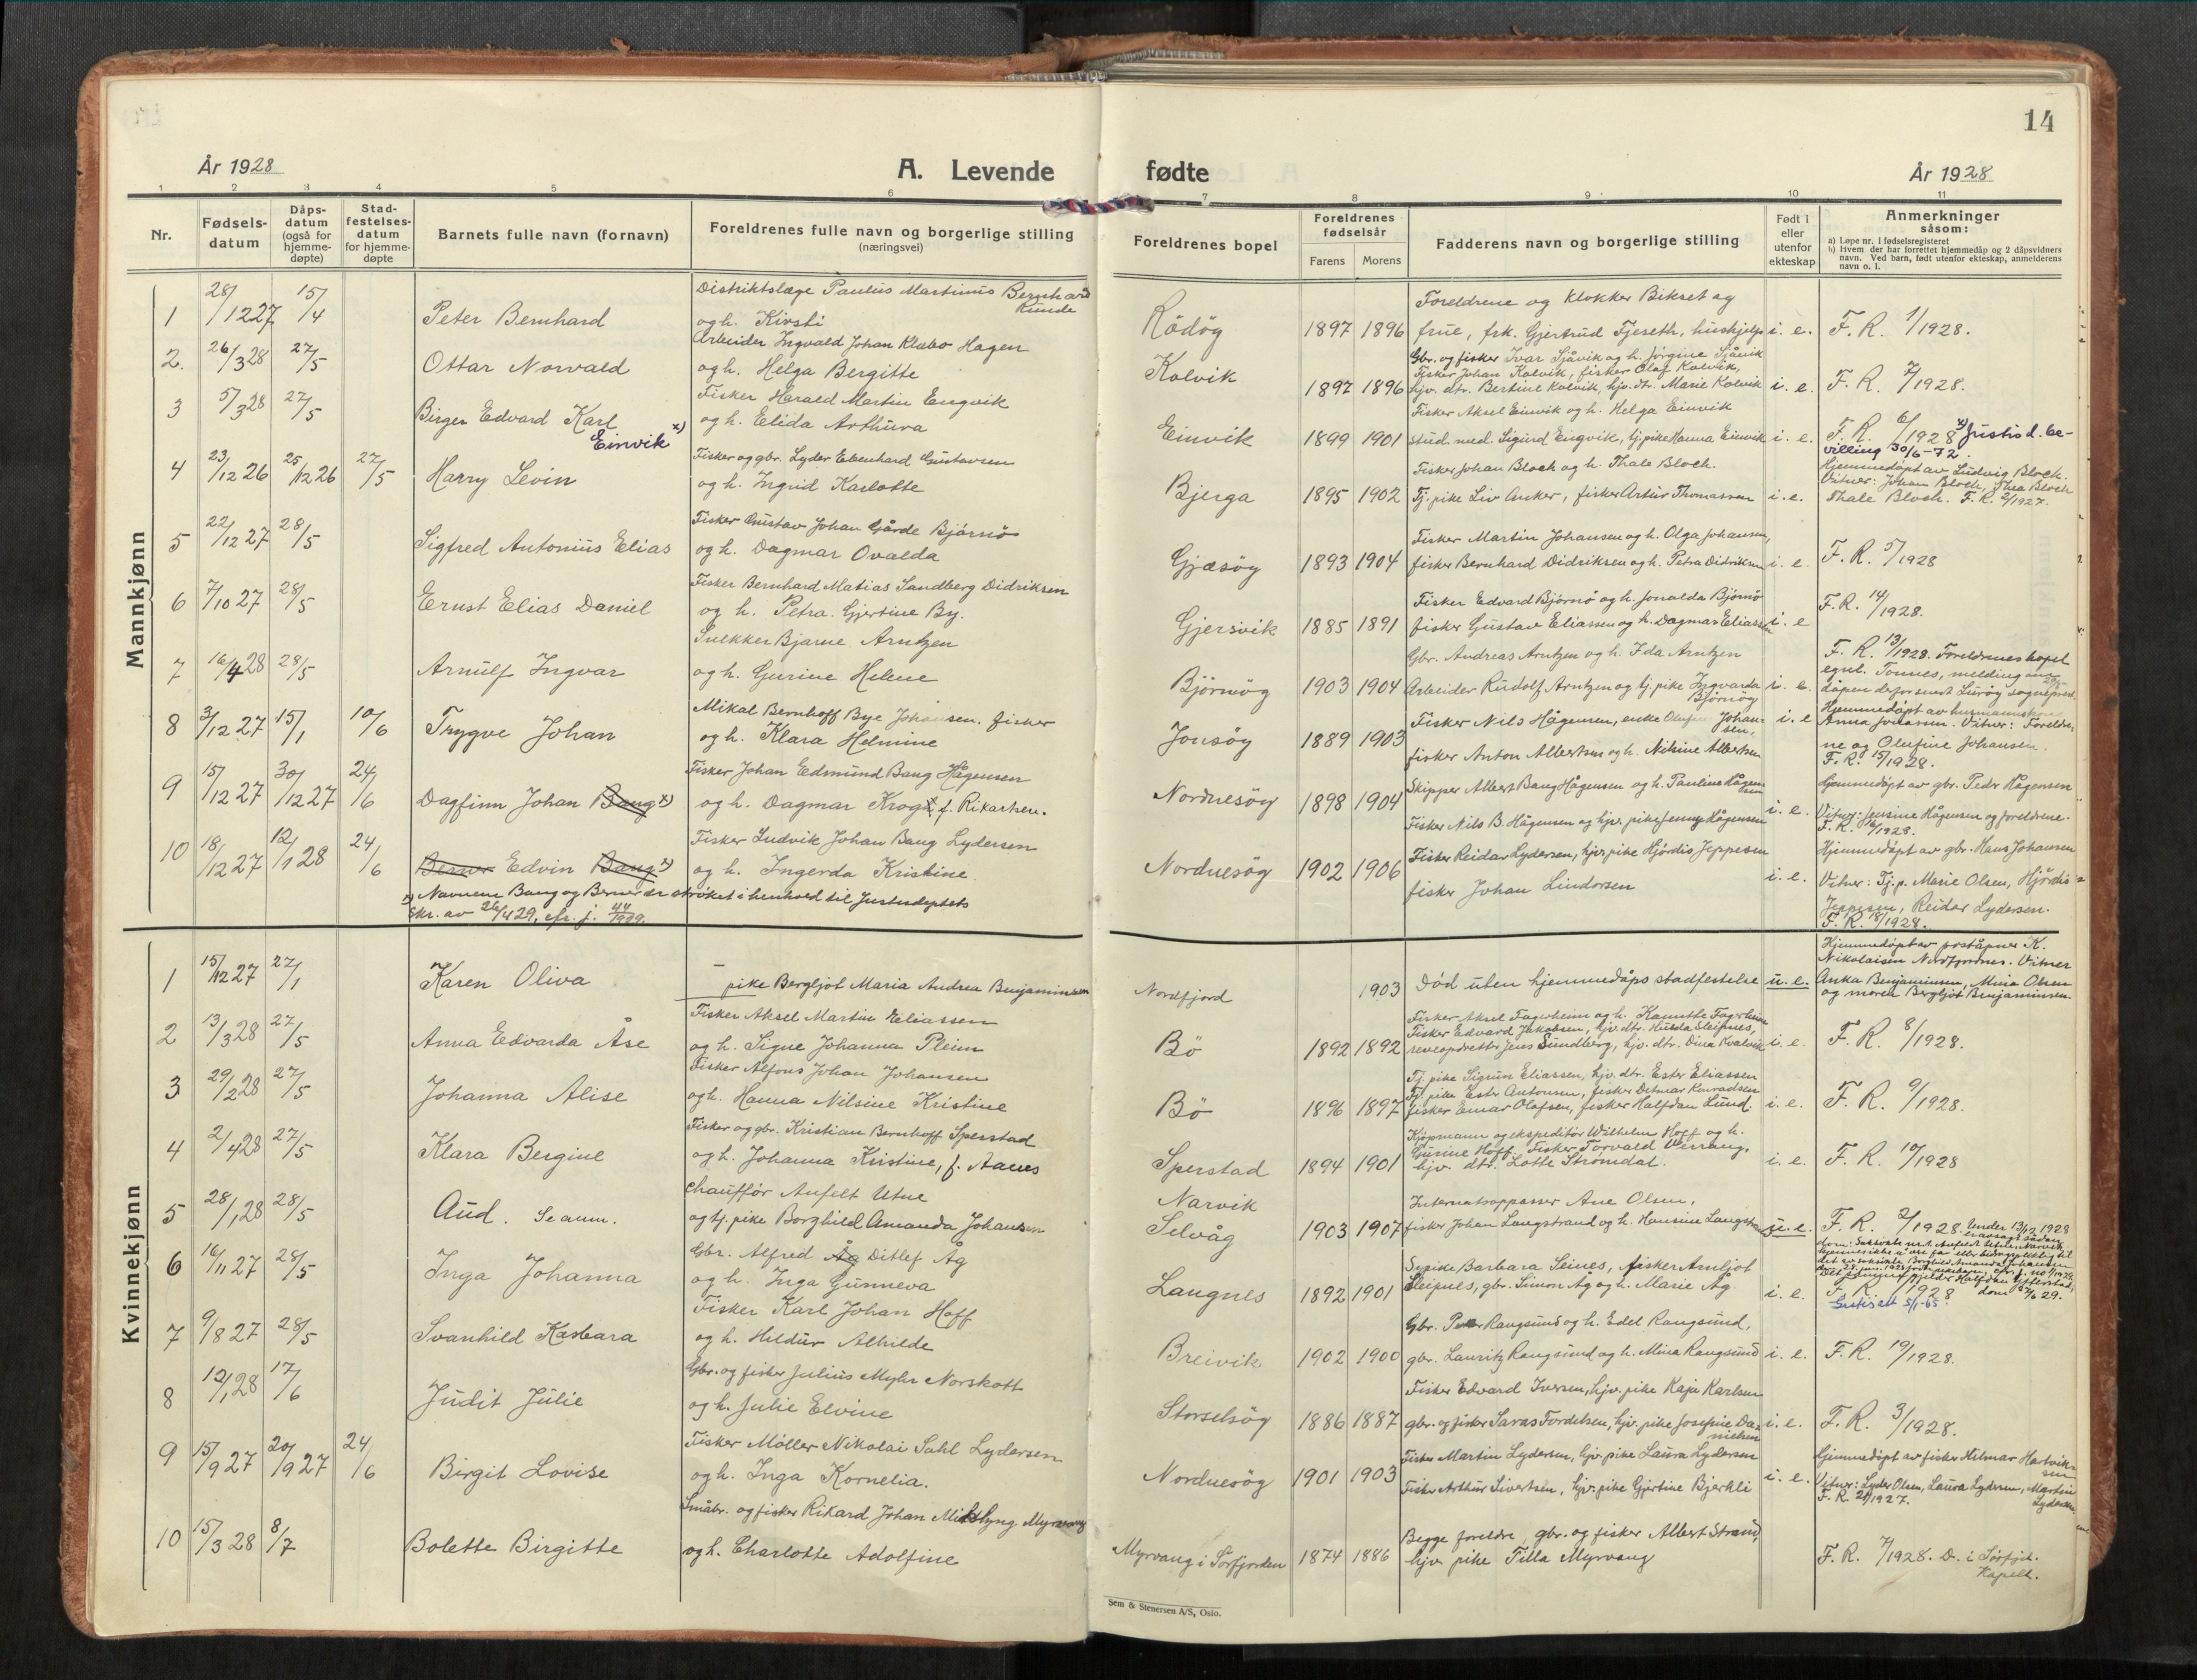 14
År 1928
A. Levende
fødte
År 1928
1 2 3 4 5 6 7 8 9 10 11
Nr.
Fødsels-
datum
Dåps-
datum
(også for
hjemme-
døpte)
Stad-
festelses-
datum
for hjemme-
døpte
Barnets fulle navn (fornavn)
Foreldrenes fulle navn og borgerlige stilling
(næringsvei)
Foreldrenes bopel
Foreldrenes
fødselsår
Farens Morens
Fadderens navn og borgerlige stilling
Født i
eller
utenfor
ekteskap
Anmerkninger
såsom:
a) Løpe nr. i fødselsregisteret
b) Hvem der har forrettet hjemmedåp og 2 dåpsvidners
navn. Ved barn, født utenfor ekteskap, anmelderens
navn o. l.
Mannkjønn
1 28/12 27 15/4 Peter Bernhard
Distriktslæge Paulus Martinus Bernhard
Runde
og h. Kirsti
Rödöy 1897 1896
Foreldrene og klokker Bikset og
frue, frk. Gjertrud Fjeseth, hushjelp i. e. F. R. 1/1928.
2. 26/3 28 27/5 Ottar Norvald
Arbeider Ingvald Johan Klæbo Hagen
og h. Helga Bergitte
Kolvik 1897 1896
Gbr. og fisker Ivar Sjåvik og h. Jörgine Sjåvik
Fisker Johan Kolvik, fisker Olaf Kolvik,
hjv. dtr. Bertine Kolvik, hjv. dtr. Marie Kolvik i. e. F. R. 7/1928.
3 5/3 28 27/5 Birger Edvard Karl
Einvik x)
Fisker Harald Martin Engvik
og h. Elida Arthura
Einvik 1899 1901
Fisker Aksel Einvik og h. Helga Einvik
stud. med. Sigurd Engvik, tj. pike Hanna Einvik i. e. F. R. 6/1928 x) Justisd. be-
villing 30/6-72.
4 23/12 26 25/12 26 27/5 Harry Levin
Fisker og gbr. Lyder Edenhard Gustavsen
og h. Ingrid Karlotte
Bjerga 1895 1902
Fisker Johan Bloch og h. Thale Bloch.
Tj. pike Liv Anker, fisker Artur Thomassen i. e.
Hjemmedöpt av Ludvig Bloch.
Vitner: Johan Bloch, Thea Bloch
Thale Bloch. F. R. 2/1927.
5 22/12 27 28/5 Sigfred Antonius Elias
Fisker Gustav Johan Gårde Bjørnø
og h. Dagmar Ovalda
Gjæsöy 1893 1904
Fisker Martin Johansen og h. Olga Johansen,
fisker Bernhard Didriksen og h. Petra Didriksen i. e. F. R. 5/1928
6 7/10 27 28/5 Ernst Elias Daniel
Fisker Bernhard Matias Sandberg Didriksen
og h. Petra Gjertine By.
Gjersvik 1885 1891
Fisker Edvard Bjørnø og h. Jonalda Bjørnø
fisker Gustav Eliassen og h. Dagmar Eliassen i. e F. R. 14/1928.
7 16/4 28 28/5 Arnulf Ingvar
Snekker Bjarne Arntzen
og h. Gurine Helene
Björnöy 1903 1904
Gbr. Andreas Arntzen og h. Ida Arntzen
Arbeider Rudolf Arntzen og tj. pike Ingvarda i. e.
Björnöy
F. R. 13/1928. Foreldrenes bopel
egtl. Tonnes, melding om
dåpen derfor sendt Luröy sogneprest
8 3/12 27 15/1 10/6 Trygve Johan
Mikal Bernhoff Bye Johansen. fisker
og h. Klara Helmine
Jonsöy 1889 1903
Fisker Nils Hågensen, enke Olufine Johan-
sen,
fisker Anton Albertsen og h. Nilsine Albertsen i. e
Hjemmedöpt av husmannskone
Anna Jonassen. Vitner: Foreldre-
ne og Olufine Johansen.
F. R. 15/1928.
9 15/12 27 30/12 27 24/6 Dagfinn Johan Bang x)
Fisker Johan Edmund Bang Hågensen
og h. Dagmar Krog f. Rikartsen.
Nordnesöy 1898 1904
Skipper Albert Bang Hågensen og h. Pauline Hågen-
sen
Fisker Nils B. Hågensen og hjv. pike Jenny Hågensen i. e.
Hjemmedöpt av gbr. Peder Hågensen
Vitner: Jensine Hågensen og foreldrene.
F. R. 16/1928.
10 18/12 27 12/1 28 24/6 Berner Edvin Bang x)
Fisker Ludvik Johan Bang Lydersen
og h. Ingerda Kristine.
Nordnesöy 1902 1906
Fisker Reidar Lydersen, hjv. pike Hjördis Jeppesen
fisker Johan Lindorsen i. e.
Hjemmedöpt av gbr. Hans Johansen
Vitner: Tj. p. Marie Olsen, Hjördis
Jeppesen, Reidar Lydersen.
F. R. 18/1928.
x) Navnene Bang og Berner er strøket i henhold til Justisdeptets
skr. av 26/4 29, cfr. j. 44/1929.
Kvinnekjønn
1 15/12 27 27/1 Karen Oliva
–
pike Bergljot Maria Andrea Benjaminsen
Nordfjord 1903 Död uten hjemmedåps stadfestelse u. e.
Hjemmedöpt av poståpner K.
Nikolaisen Nordfjordnes. Vitner
Anka Benjaminsen, Mina Olsen
og moren Bergljot Benjaminsen.
2 13/3 28 27/5 Anna Edvarda Åse
Fisker Aksel Martin Eliassen
og h. Signe Johanna Pleim
Bö 1892 1892
Fisker Aksel Fagerheim og h. Kanutte Fagerheim
Fisker Edvard Jakobsen, hjv. dtr. Husda Sleipnes,
reveopdretter Jens Sundberg, hjv. dtr. Dina Kvalvik i. e. F. R. 8/1928.
3 29/2 28 27/5 Johanna Alise
Fisker Alfons Johan Johansen
og h. Hanna Nilsine Kristine
Bö 1896 1897
Tj. pike Sigrun Eliassen, hjv. dtr. Ester Eliassen
Tj. pike Ester Antonsen, fisker Detmar Konradsen
fisker Einar Olafsen, fisker Halfdan Lund. i. e. F. R. 9/1928.
4 2/4 28 27/5 Klara Bergine
Fisker og gbr. Kristian Bernhoff Sperstad
og h. Johanna Kristine, f. Aanes
Sperstad 1894 1901
Kjöpmann og ekspeditör Wilhelm Hoff og h.
Gurine Hoff. Fisker Torvald Værrang.
hjv. dtr. Lotte Strömdal. i. e. F. R. 10/1928
5 28/1 28 28/5 Aud. Se anm.
Chauffør Anfelt Utne
og tj. pike Borghild Amanda Johansen
Narvik
Selvåg 1903 1907
Internatoppasser Ane Olsen,
fisker Johan Langstrand og h. Hansine Langstrand u. e. F. R. 2/1928. Under 13/12 1928
6 16/11 27 28/5 Inga Johanna
Gbr. Alfred Ditlef Åg
og h. Inga Gunneva
Langnes 1892 1901
Sypike Barbara Seines, fisker Arnljot
Sleipnes, gbr. Simon Åg og h. Marie Åg. i. e. F. R. 1/1928
7 9/8 27 28/5 Svanhild Kasbara
Fisker Karl Johan Hoff
og h. Heldur Alhilde
Breivik 1902 1900
Gbr. Peder Rangsund og h. Edel Rangsund,
gbr. Lauritz Rangsund og h. Mina Rangsund i. e. F. R. 19/1928.
8 12/1 28 17/6 Judit Julie
Gbr. og fisker Julius Myhr Norskott
og h. Julie Elvine
Storselsöy 1886 1887
Fisker Edvard Iversen, hjv. pike Kaja Karlsen
gbr. og fisker Saras Fordelsen, hjv. pike Josefine Da-
nielsen i. e. F. R. 3/1928.
9 15/9 27 20/9 27 24/6 Birgit Lovise
Fisker Möller Nikolai Sahl Lydersen
og h. Inga Kornelia.
Nordnesöy 1901 1903
Fisker Martin Lydersen, hjv. pike Laura Lydersen
Fisker Arthur Sivertsen, hjv. pike Gjertine Bjerkli i. e.
Hjemmedöpt av fisker Hilmar Hartvik-
sen
Vitner: Lyder Olsen, Laura Lydersen, Martin
Lydersen
F. R. 21/1927.
10 15/3 28 8/7 Bolette Birgitte
Småbr. og fisker Rikard Johan Myrvang
og h. Charlotte Adolfine
Myrvang i Sörfjorden 1874 1886
Begge foreldre, gbr. og fisker Albert Strand,
hjv. pike Tilla Myrvang
F. R. 7/1928. D. i Sörfjd.
Kapell.
Sem & Stenersen A/S, Oslo.